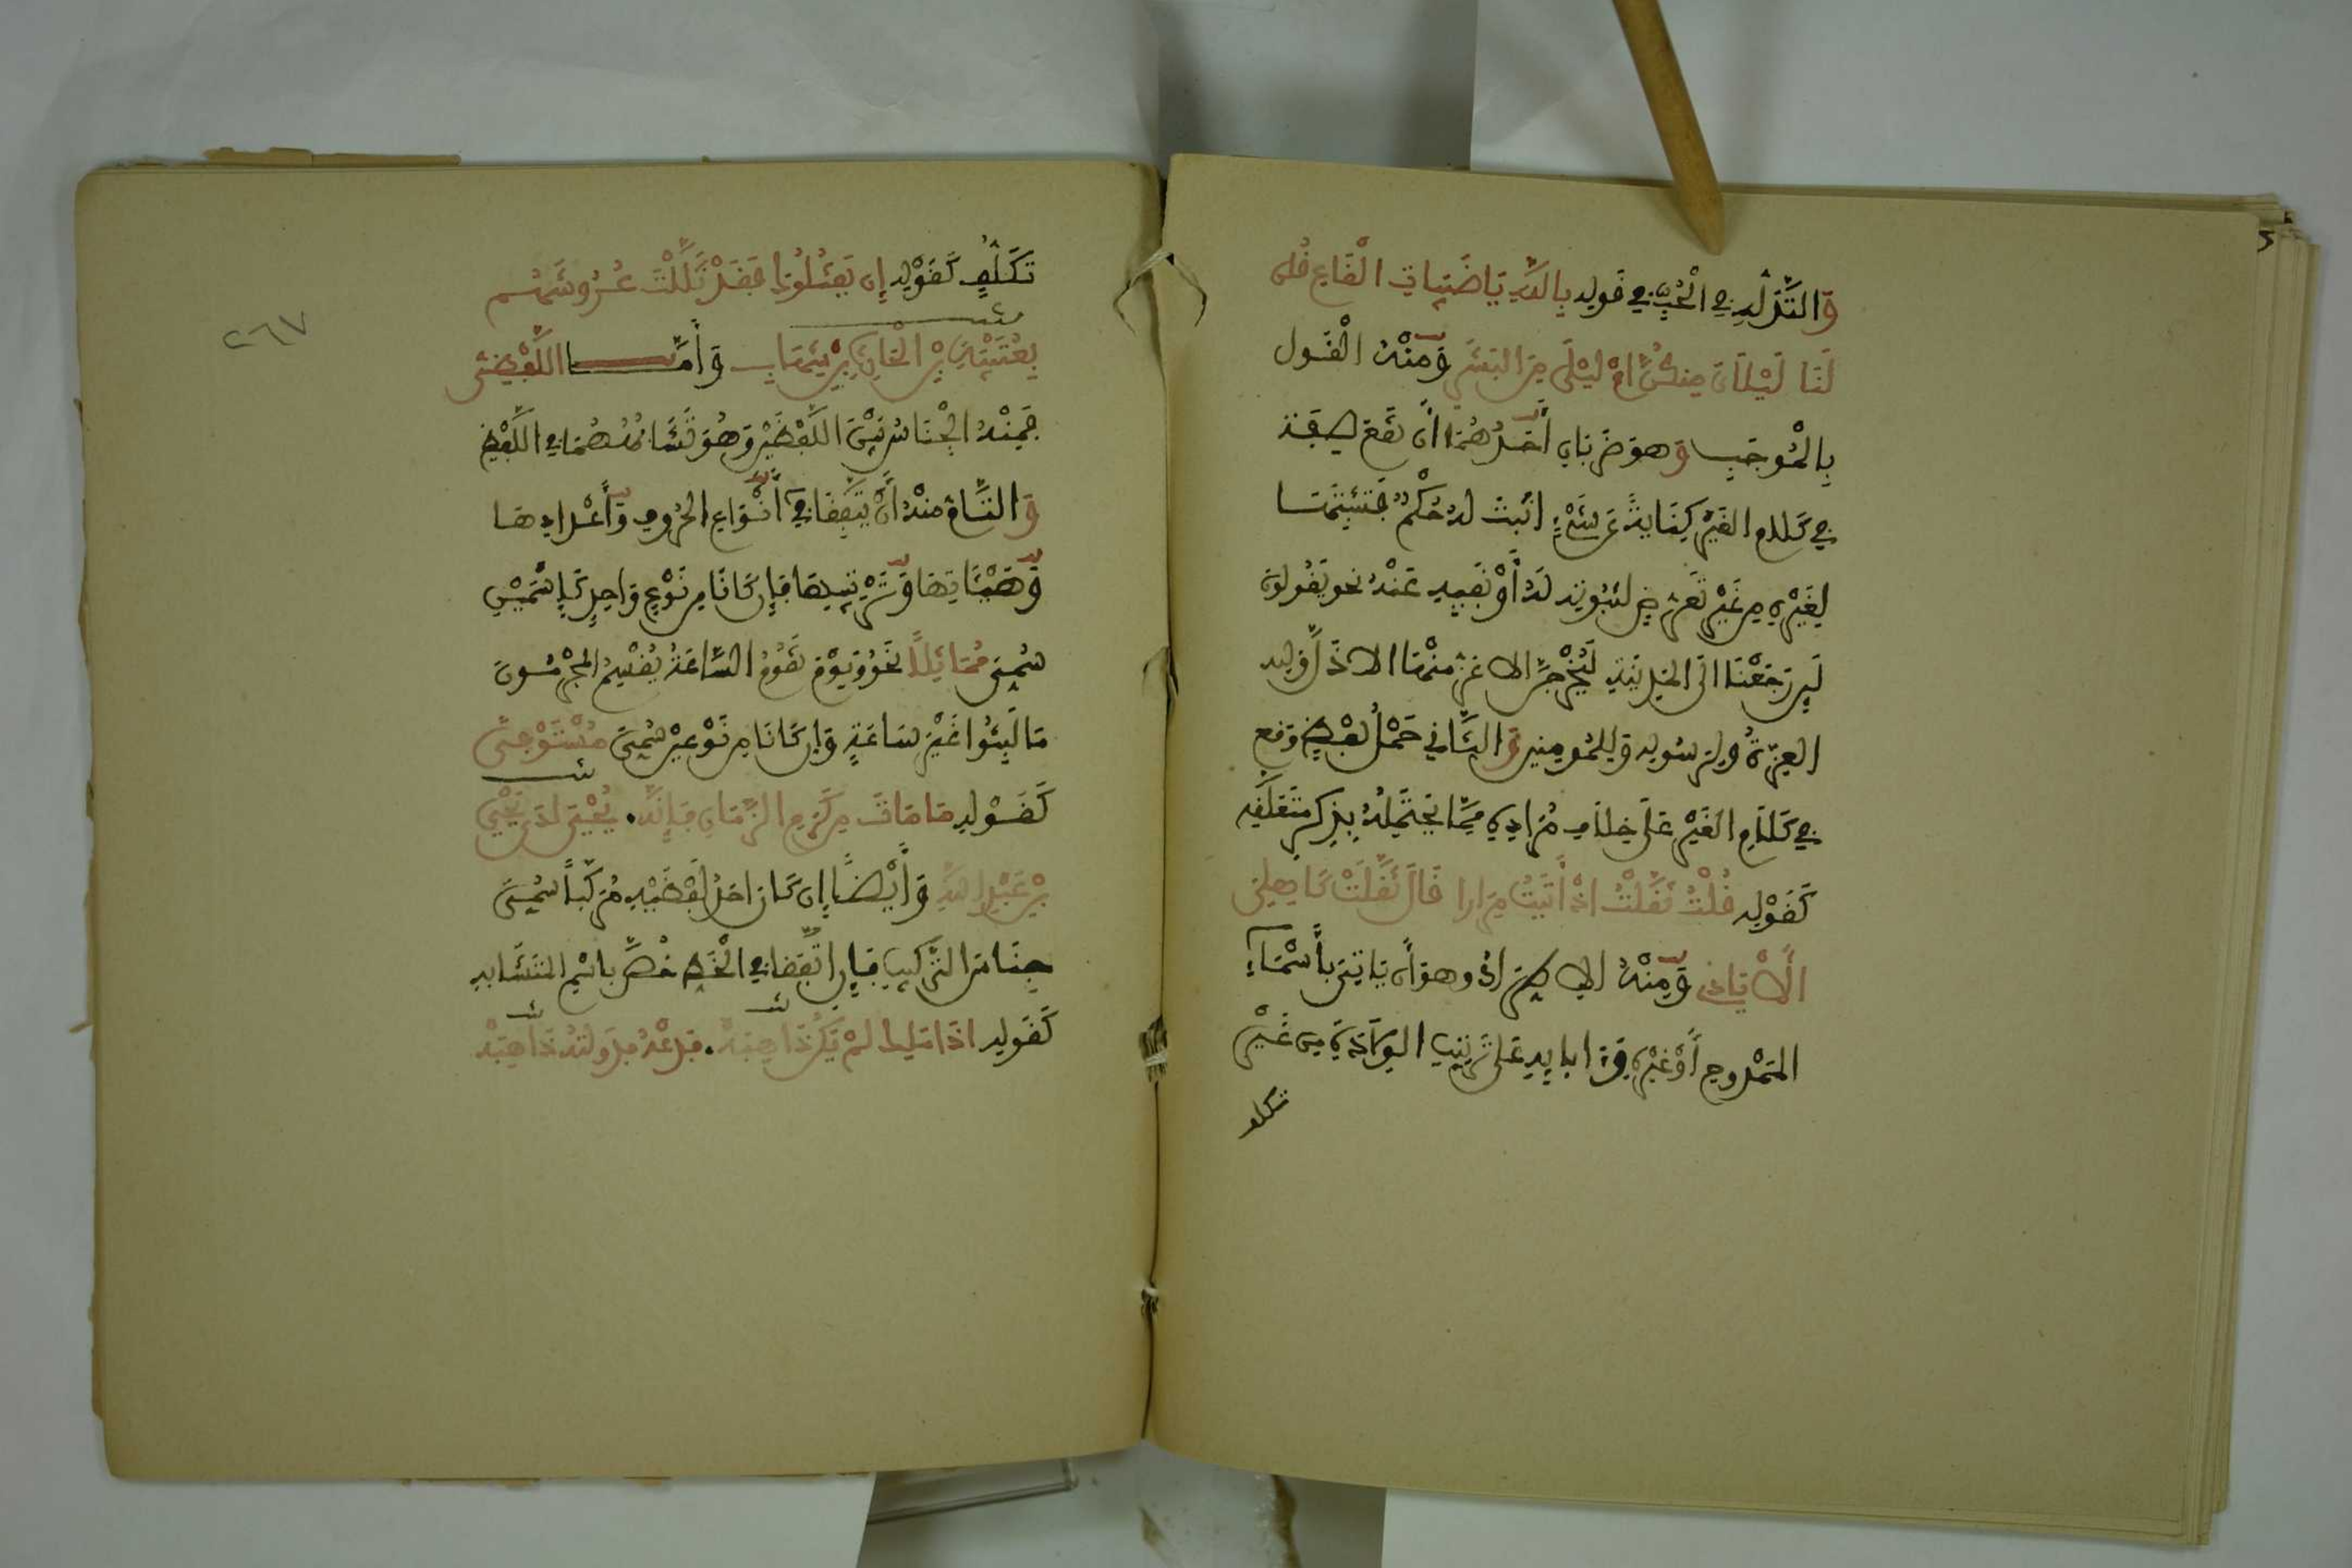 وَالتَّدَلُّهِ فِي الْحُبِّ فِي قَولِهِ بِاللهِ يَا ظَبَيَاتِ الْقَاعِ قُلْنَ
لَنَا لَيْلَايَ مِنكُنَّ أمْ لَيْلَى مِنَ البَشَرِ وَمِنْهُ الْقَول
بِالْمُوجَبِ وَهوَ ضَربَانِ أَحَدُهُمَا أَن تَقَعَ صِفَة
فِي كَلَامِ الغَيْرِ كِنَايَةً عَن شَيْءٍ اثبتَ لهُ حُكْمٌ فَتُثْبِتُهَا
لِغَيْرِهِ مِن غَيْرِ تَعَرُّضٍ لثبُوتِهِ لَهُ أَوْ نَفْيِهِ عَنْهُ نحو يَقُولُونَ
لَئِن رَجَعْنَا الَى المَدِينَةِ لَيُخْرِجَنَّ الاعَزُّ مِنْهَا الاذَلَّ وَلِلهِ
العِزَّةُ وَلِرَسُولِهِ وَلِلْمُومِنِينَ وَالثَّانِي حَمْلُ لَفْظٍ وَقع
فِي كَلَامِ الغَيْرِ عَلَى خِلَافِ مُرَادِهِ مِمَّا يَحْتَمِلُهُ بِذِكْرِ مُتَعَلَّقِهِ
كَقَوْلِهِ قُلْتُ ثَقَّلْتُ اذْ أَتَيْتُ مِرَارا قَالَ ثَقَّلْتَ كَاهِلِي
بِالْأَيَادِي وَمِنْهُ الاطِّرَادُ وهوَ أَن يَاتِيَ بِأَسْمَاءِ
المَمْدُوحِ أَوْ غَيْرِهِ وَءَابَايِهِ عَلَى تَرْتِيبِ الوِلَادَةِ مِن غَيْرِ
تكلف
تَكَلُّفٍ كَقَوْلِهِ إِن يَقْتُلُوكَ فَقَدْ ثَلَلْتَ عُرُوشَهُم
بِعُتَيْبَةَ بْنِ الْحَارِثِ بْنِ شِهَابِ وَأَمَّا اللَّفْظِيُّ
فَمِنْهُ الْجِنَاسُ بَيْنَ اللَّفْظَيْنِ وَهُوَ تَشَابُهُهُمَا فِي اللَّفْظِ
وَالتَّامُّ مِنْهُ أَنْ يَتَّفِقَا فِي أَنْوَاعِ الحُرُوفِ وَأَعْدَادِهَا
وَهَيْئَاتِهَا وَتَرْتِيبِهَا فَإِن كَانَا مِن نَوْعٍ وَاحِدٍ كَاسْمَيْنِ
سُمِّيَ مُمَاثِلًا نَحْوُ وَيَوْمَ تَقُومُ السَّاعَةُ يُقْسِمُ الْمُجْرِمُونَ
مَا لَبِثُوا غَيْرَ سَاعَةٍ وَإِن كَانَا مِن نَوْعَيْنِ سُمِّيَ مُسْتَوْفًى
كَقَوْلِهِ مَا مَاتَ مِن كَرَمِ الزَّمَانِ فَإِنَّهُ. يَحْيَى لَدَى يَحْيَى
بْنِ عَبْدِ اللهِ وَأَيْضًا إِن كَانَ احَدُ لَفْظَيْهِ مُرَكَّبًا سُمِّيَ
جِنَاسَ التَّرْكِيبِ فَإِن اتَّفَقَا فِي الْخَطِّ خُصَّ بِاسْمِ المتَشَابِهِ
كَقَولِهِ اذَا مَلِكٌ لَمْ يَكُنْ ذَا هِبَهْ. فَدَعْهُ فَدَولَتُهُ ذَاهِبَهْ
٢٦٧